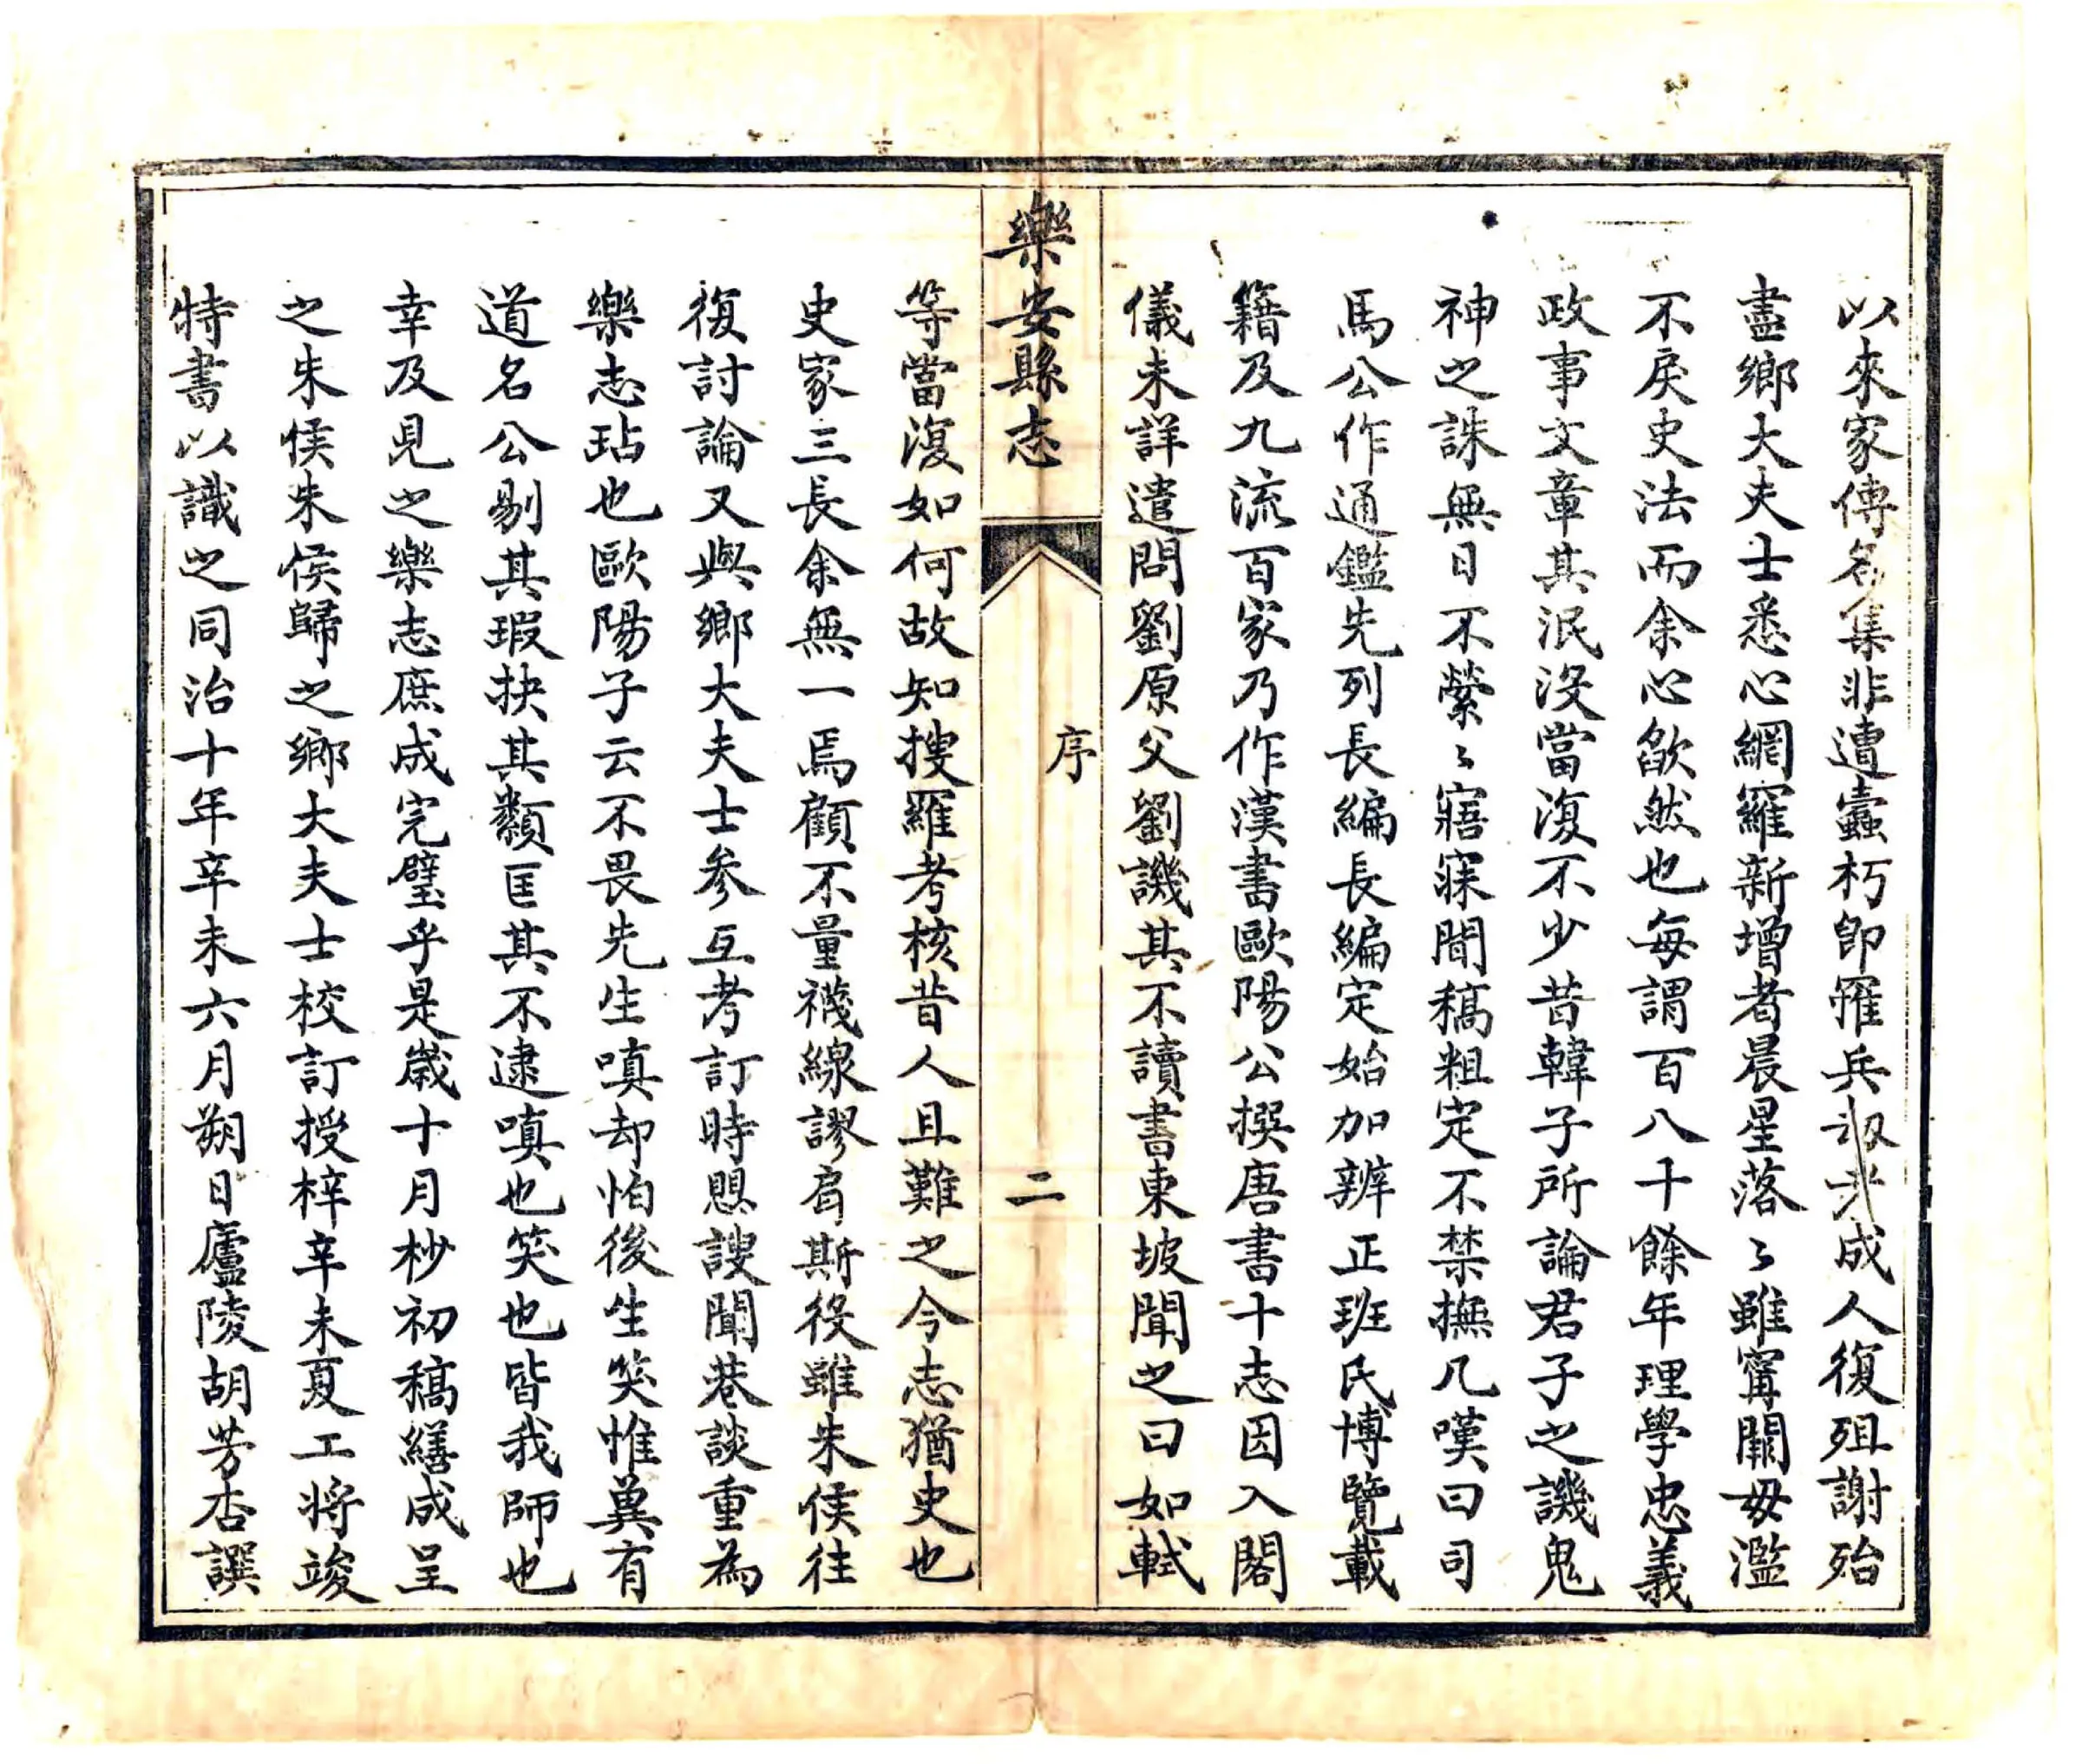 以來家傳名集非遭蠹朽卽罹兵成人復殂謝殆
盡鄉大夫士悉心網羅新增者晨星落〻雖寗闕毋濫
不戾史法而余心歉然也每謂百八十餘年理學忠義
政事文章其泯沒當復不少昔韓子所論君子之譏鬼
神之誅無日不縈〻寤寐間稿粗定不禁撫几嘆曰司
馬公作通鑑先列長編長編定始加辨正班氏博覽載
籍及九流百家乃作漢書歐陽公撰唐書十志因入閣
儀未詳遣問劉原父劉譏其不讀書東坡聞之曰如軾
樂安縣志
序
二
等當復如何故知搜羅考核昔人且難之今志猶史也
史家三長余無一焉顧不量襪線謬肩斯役雖朱侯往
復討論又與鄉大夫士參互考訂時恐謏聞巷談重為
樂志玷也歐陽子云不畏先生嗔却怕後生笑惟冀有
道名公剔其瑕抉其纇匡其不逮嗔也笑也皆我師也
幸及見之樂志庶成完璧乎是歲十月杪初稿繕成呈
之朱侯朱侯歸之鄉大夫士校訂授梓辛未夏工將竣
特書以識之同治十年辛未六月朔日廬陵胡芳杏譔